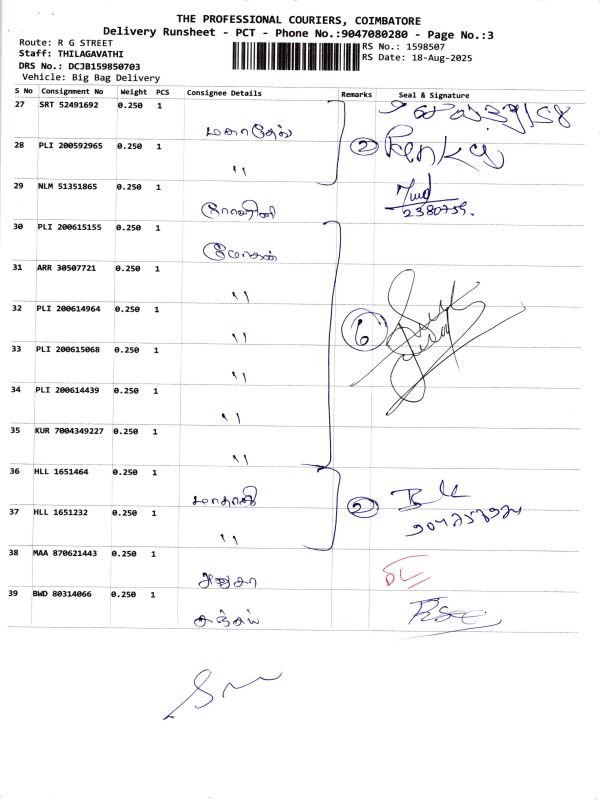 THE PROFESSIONAL COURIERS, COIMBATORE
Delivery Runsheet - PCT - Phone No.:9047080280 - Page No.:3
Route: R G STREET
RS No.: 1598507
Staff: THILAGAVATHI
RS Date: 18-Aug-2025
DRS No.: DCJB159850703
Vehicle: Big Bag Delivery
S No Consignment No Weight PCS Consignee Details Remarks Seal & Signature
27 SRT 52491692 0.250 1
மகாதேவ்
28 PLI 200592965 0.250 1 2
"
29 NLM 51351865 0.250 1
2380755.
30 PLI 200615155 0.250 1
மோகன்
31 ARR 30507721 0.250 1
"
32 PLI 200614964 0.250 1
" 6
33 PLI 200615068 0.250 1
"
34 PLI 200614439 0.250 1
"
35 KUR 7004349227 0.250 1
"
36 HLL 1651464 0.250 1
2
37 HLL 1651232 0.250 1
"
38 MAA 870621443 0.250 1
39 BWD 80314066 0.250 1
சஞ்சய்